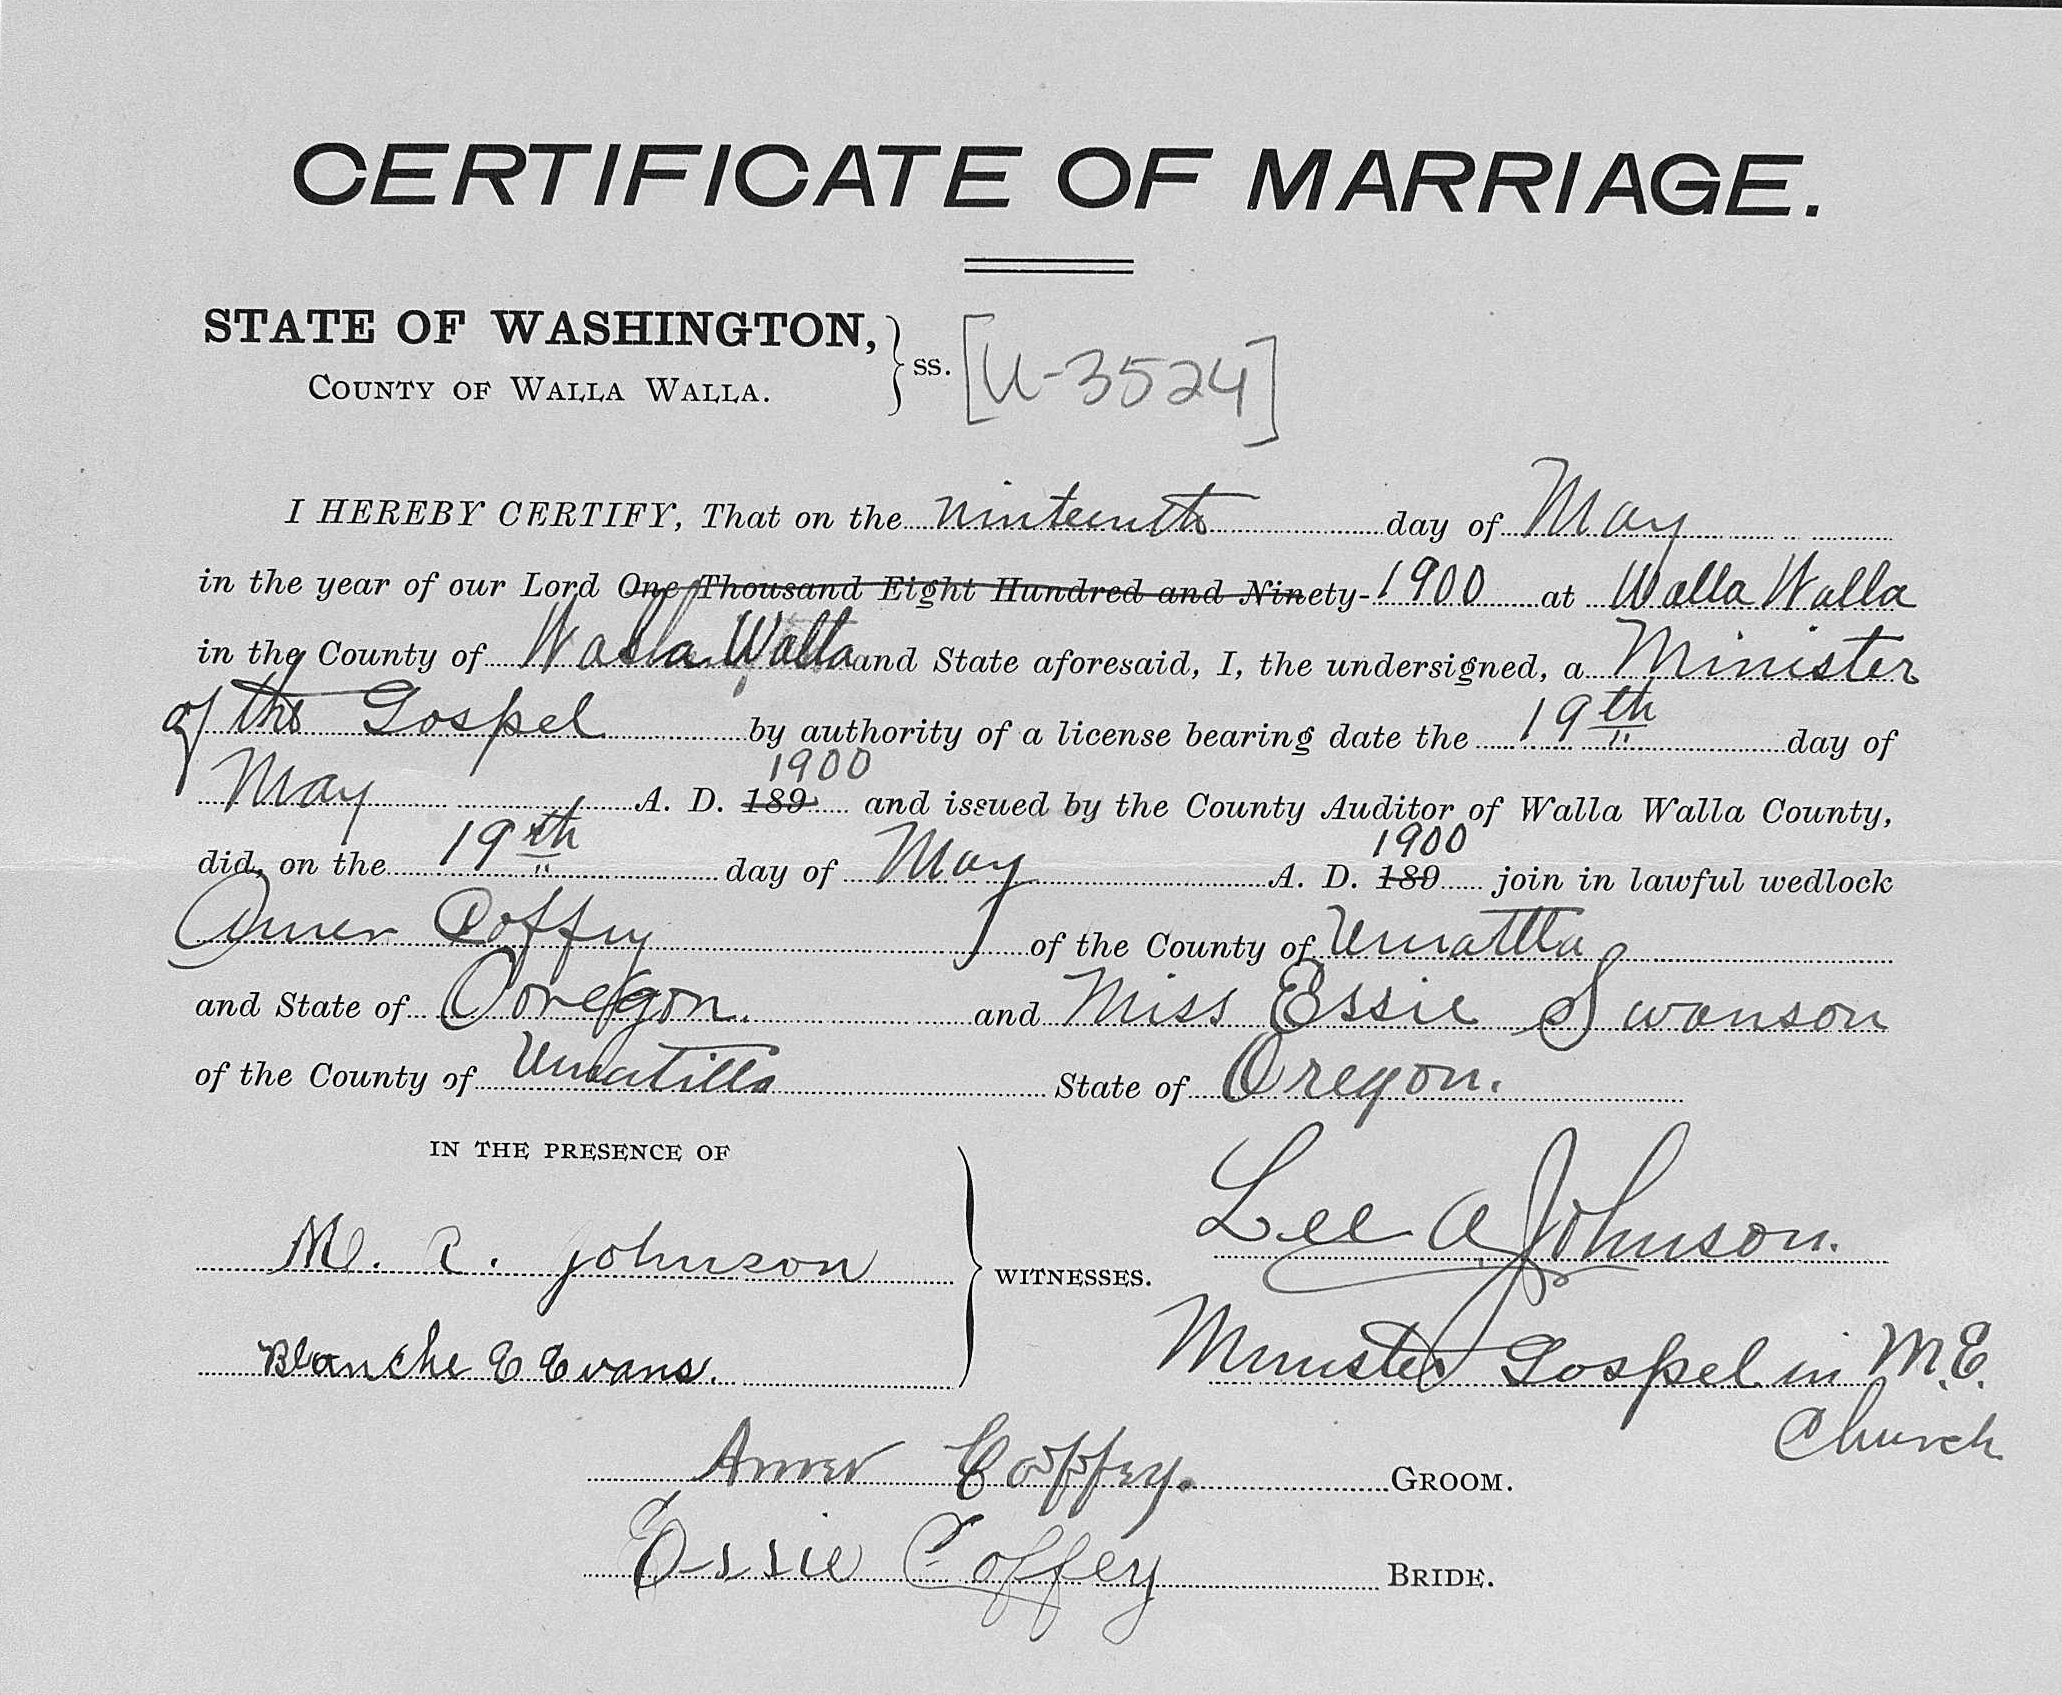 CERTIFICATE OF MARRIAGE.
STATE OF WASHINGTON,
COUNTY OF WALLA WALLA.
ss. [U-3524]
I HEREBY CERTIFY, That on the ninteenth day of May
in the year of our Lord One Thousand Eight Hundred and Ninety- 1900 at Walla Walla
in the County of Walla Walla and State aforesaid, I, the undersigned, a Minister
of the Gospel by authority of a license bearing date the 19th day of
1900
May A. D. 189 and issued by the County Auditor of Walla Walla County,
1900
did, on the 19th day of May A. D. 189 join in lawful wedlock
Coffry of the County of Umatilla
and State of Ooregon. and Miss Essie Swanson
of the County of Umatilla State of Oregon.
IN THE PRESENCE OF
Lee A Johnson.
M. C. Johnson
WITNESSES.
Blanche E Evans.
Minister Gospel in M.E.
Church
Coffey. GROOM.
Essie Coffey BRIDE.